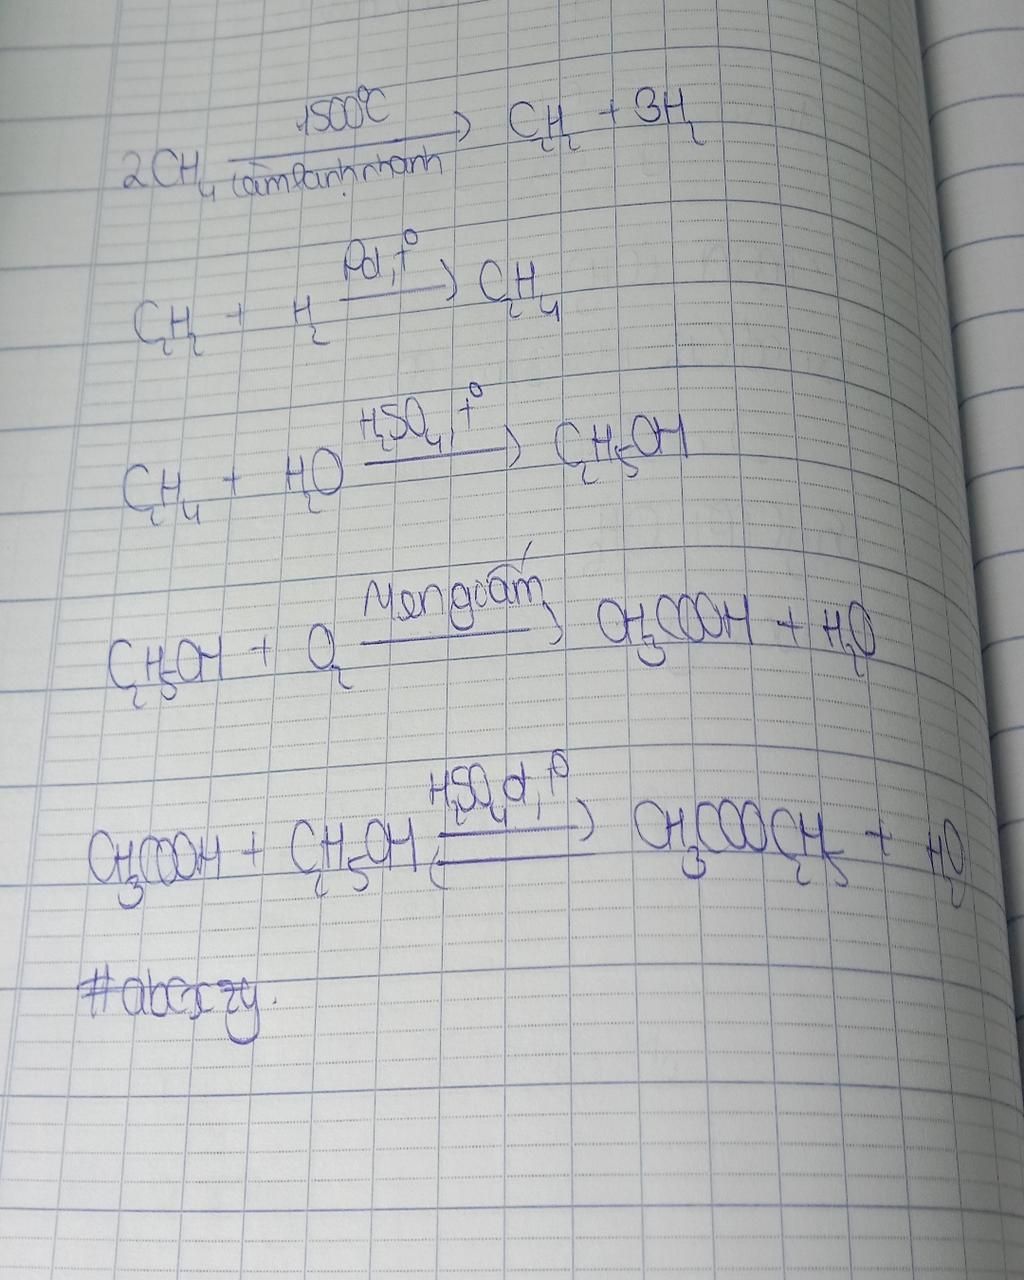 2CH₄ 1500°C làm lạnh nhanh → C₂H₂ + 3H₂
C₂H₂ + H₂ Pd, t° → C₂H₄
C₂H₄ + H₂O H₂SO₄, t° → C₂H₅OH
C₂H₅OH + O₂ Men giấm → CH₃COOH + H₂O
CH₃COOH + C₂H₅OH H₂SO₄đ, t° ⇌ CH₃COOC₂H₅ + H₂O